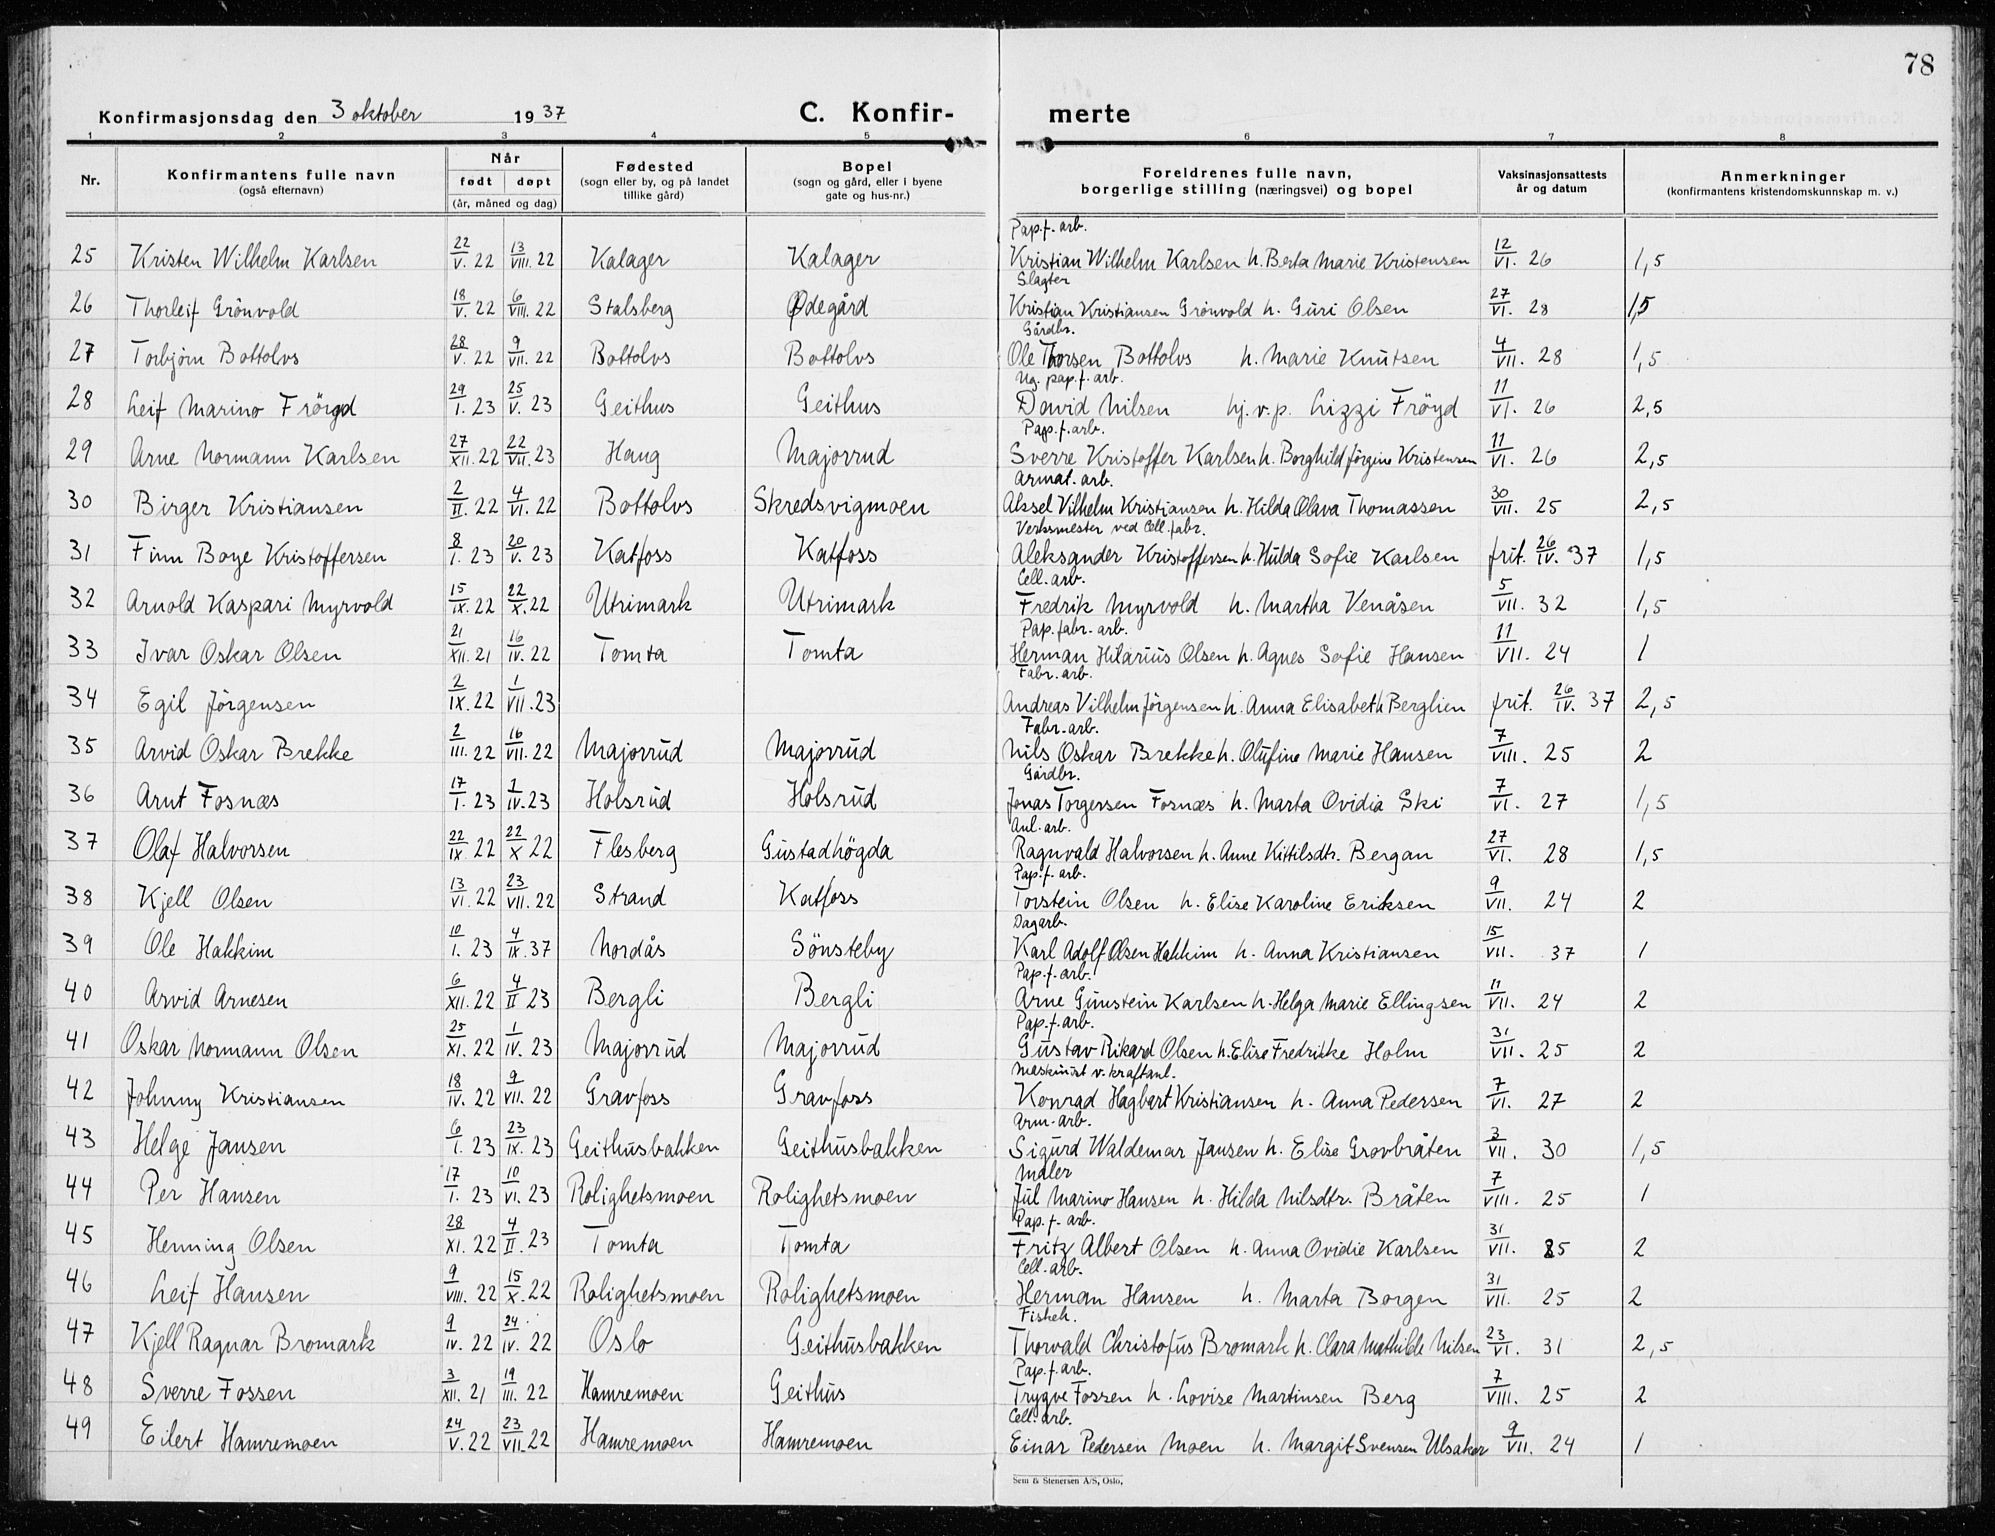 78
Konfirmasjonsdag den 3 oktober 1937 C. Konfir- merte
1 2 3 4 5 6 7 8
Nr. Konfirmantens fulle navn (også efternavn) Når født døpt (år, måned og dag) Fødested (sogn eller by, og på landet tillike gård) Bopel (sogn og gård, eller i byene gate og hus-nr.) Foreldrenes fulle navn, borgerlige stilling (næringsvei) og bopel Vaksinasjonsattests år og datum Anmerkninger (konfirmantens kristendomskunnskap m. v.)
Pap.f. arb.
25 Kristen Wilhelm Karlsen 22/V. 22 13/VIII. 22 Kalager Kalager Kristian Wilhelm Karlsen h. Berta Marie Kristensen 12/VI. 26 1,5
Slagter
26 Thorleif Grönvold 18/V. 22 6/VIII. 22 Stalsberg Ødegård Kristian Kristiansen Grönvold h. Guri Olsen 27/VI. 28 1,5
Gårdbr.
27 Torbjørn Bottolvs 28/V. 22 9/VII. 22 Bottolvs Bottolvs Ole Thorsen Bottolvs h. Marie Knutsen 4/VII. 28 1,5
Ug. pap.f. arb.
28 Leif Marino Fröyd 29/I. 23 25/V. 23 Geithus Geithus David Nilsen hj.v.p. Lizzi Fröyd 11/VI. 26 2,5
Pap.f. arb.
29 Arne Normann Karlsen 27/XII. 22 22/VII. 23 Haug Majorrud Sverre Kristoffer Karlsen h. Borghild Jörgine Kristensen 11/VI. 26 2,5
Armat. arb.
30 Birger Kristiansen 2/II. 22 4/VI. 22 Bottolvs Skredsvigmoen Aksel Vilhelm Kristiansen h. Hilda Olava Thomassen 30/VII. 25 2,5
Verksmester ved Cell. fabr.
31 Finn Boye Kristoffersen 8/I. 23 20/V. 23 Katfoss Katfoss Aleksander Kristoffersen h. Hulda Sofie Karlsen frit. 26/IV. 37 1,5
Cell. arb.
32 Arnold Kaspari Myrvold 15/IX. 22 22/X. 22 Utrimark Utrimark Fredrik Myrvold h. Martha Venåsen 5/VII. 32 1,5
Pap. fabr. arb.
33 Ivar Oskar Olsen 21/XII. 21 16/IV. 22 Tomta Tomta Herman Hilarius Olsen h. Agnes Sofie Hansen 11/VII. 24 1
Fabr. arb.
34 Egil Jörgensen 2/IX. 22 1/VII. 23 Andreas Vilhelm Jörgensen h. Anna Elisabeth Berglien frit. 26/IV. 37 2,5
Fabr. arb.
35 Arvid Oskar Brekke 2/III. 22 16/VII. 22 Majorrud Majorrud Nils Oskar Brekke h. Olufine Marie Hansen 7/VIII. 25 2
Gårdbr.
36 Arnt Fosnæs 17/I. 23 2/IV. 23 Holsrud Holsrud Jonas Torgersen Fosnæs h. Marta Ovidia Ski 7/VI. 27 1,5
Anl. arb.
37 Olaf Halvorsen 22/IX. 22 22/X 22 Flesberg Gustadhögda Ragnvald Halvorsen h. Anne Kittilsdtr. Bergan 27/VI. 28 1,5
Pap.f. arb.
38 Kjell Olsen 13/VI. 22 23/VII. 22 Strand Katfoss Torstein Olsen h. Elise Karoline Eriksen 9/VII. 24 2
Dagarb.
39 Ole Hakkim 10/I. 23 4/IX. 37 Nordås Sönsteby Karl Adolf Olsen Hakkim h. Anna Kristiansen 15/VII. 37 1
Pap.f. arb.
40 Arvid Arnesen 6/XII. 22 4/II 23 Bergli Bergli Arne Gunstein Karlsen h. Helga Marie Ellingsen 11/VII. 24 2
Pap.f. arb.
41 Oskar Normann Olsen 25/XI. 22 1/IV. 23 Majorrud Majorrud Gustav Rikard Olsen h. Elise Fredrikke Holm 31/VII. 25 2
Maskinist v. kraftanl.
42 Johnny Kristiansen 18/IV. 22 9/VII. 22 Gravfoss Gravfoss Konrad Hagbart Kristiansen h. Anna Pedersen 7/VI. 27 2
Arm. arb.
43 Helge Jansen 6/I. 23 23/IX. 23 Geithusbakken Geithusbakken Sigurd Waldemar Jansen h. Elise Grovbråten 3/VII. 30 1,5
Maler
44 Per Hansen 17/I. 23 10/VI. 23 Rolighetsmoen Rolighetsmoen Jul Marino Hansen h. Hilda Nilsdtr. Bråten 7/VIII. 25 1
Pap.f. arb.
45 Henning Olsen 28/XI. 22 4/II. 23 Tomta Tomta Fritz Albert Olsen h. Anna Ovidie Karlsen 31/VII. 25 2
Cell. arb.
46 Leif Hansen 9/VIII. 22 15/X. 22 Rolighetsmoen Rolighetsmoen Herman Hansen h. Marta Borgen 31/VII. 25 2
Fiskeh.
47 Kjell Ragnar Bromark 9/IV. 22 24/IV. 22 Oslo Geithusbakken Thorvald Christofus Bromark h. Clara Mathilde Nilsen 23/VI. 31 2,5
Pap.f. arb.
48 Sverre Fossen 3/XII. 21 19/III. 22 Hamremoen Geithus Trygve Fossen h. Lovise Martinsen Berg 7/VIII. 25 2
Cell. arb.
49 Eilert Hamremoen 24/V. 22 23/VII. 22 Hamremoen Hamremoen Einar Pedersen Moen h. Margit Svensen Ulsaker 9/VII. 24 1
Sem & Stenersen A/S, Oslo.